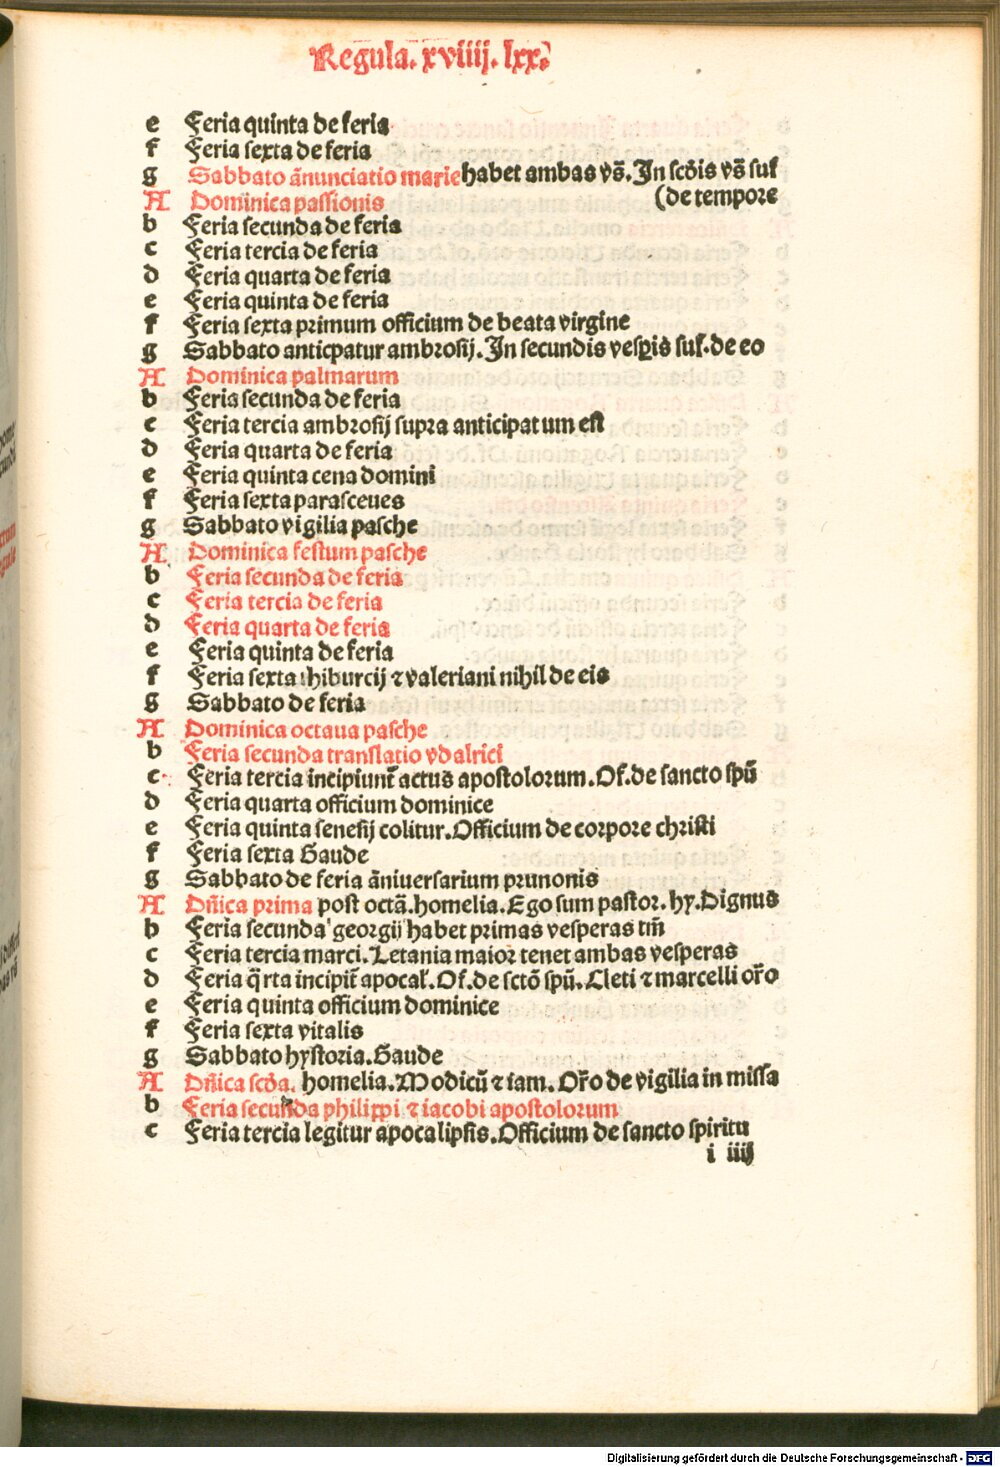 Regula. xviiij. lxx.
e Feria quinta de feria
f Feria sexta de feria
g Sabbato ānunciatio marie habet ambas vs̄. In scd̄is vs̄ suf
A Dominica passionis (de tempore
b Feria secunda de feria
c Feria tercia de feria
d Feria quarta de feria
e Feria quinta de feria
f Feria sexta primum officium de beata virgine
g Sabbato anticpatur ambrosij. In secundis vesꝑis suf. de eo
A Dominica palmarum
b Feria secunda de feria
c Feria tercia ambrosij supra anticipatum est
d Feria quarta de feria
e Feria quinta cena domini
f Feria sexta parasceues
g Sabbato vigilia pasche
A Dominica festum pasche
b Feria secunda de feria
c Feria tercia de feria
d Feria quarta de feria
e Feria quinta de feria
f Feria sexta thiburcij ⁊ valeriani nihil de eis
g Sabbato de feria
A Dominica octaua pasche
b Feria secunda translatio vdalrici
c Feria tercia incipiunt̄ actus apostolorum. Of. de sancto spū
d Feria quarta officium dominice
e Feria quinta senesij colitur. Officium de corpore christi
f Feria sexta Gaude
g Sabbato de feria āniuersarium prunonis
A Dn̄ica prima post octā. homelia. Ego sum pastor. hy. Dignus
b Feria secunda georgij habet primas vesperas tm̄
c Feria tercia marci. Letania maior tenet ambas vesperas
d Feria q̄rta incipit̄ apocal̓. Of. de sctō spū. Cleti ⁊ marcelli or̄o
e Feria quinta officium dominice
f Feria sexta vitalis
g Sabbato hystoria. Gaude
A Dn̄ica scd̄a. homelia. Modicū ⁊ iam. Or̄o de vigilia in missa
b Feria secunda philippi ⁊ iacobi apostolorum
c Feria tercia legitur apocalipsis. Officium de sancto spiritu
i iiij
Digitalisierung gefördert durch die Deutsche Forschungsgemeinschaft - DFG